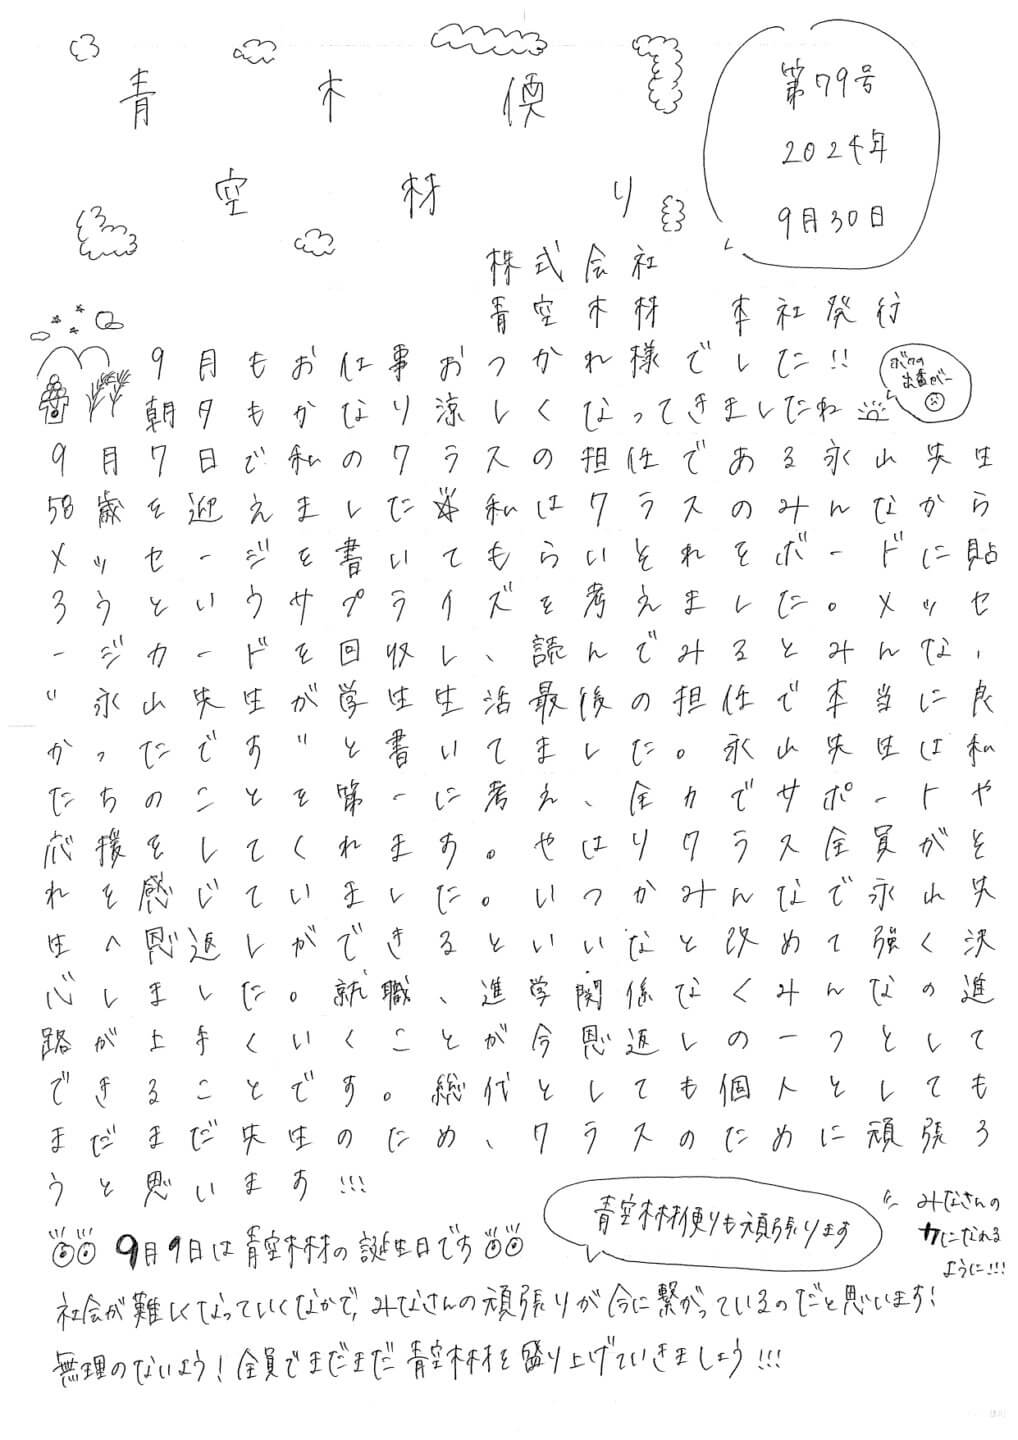 青空木材便り
第79号
2024年
9月30日
株式会社
青空木材 本社発行
9月もお仕事おつかれ様でした!!
朝夕もかなり涼しくなってきましたね
ボクの
出番がー
9月7日で私のクラスの担任である永山先生
58歳を迎えました 私はクラスのみんなから
メッセージを書いてもらいそれをボードに貼
ろうというサプライズを考えました。メッセ
ージカードを回収し、読んでみるとみんな、
"永山先生が学生生活最後の担任で本当に良
かったです"と書いてました。永山先生は私
たちのことを第一に考え、全力でサポートや
応援をしてくれます。やはりクラス全員がそ
れを感じていました。いつかみんなで永山先
生へ恩返しができるといいなと改めて強く決
心しました。就職、進学関係なくみんなの進
路が上手くいくことが今恩返しの一つとして
できることです。総代としても個人としても
まだまだ先生のため、クラスのために頑張ろ
うと思います!!!
青空木材便りも頑張ります
みなさんの
力になれる
ように!!!
9月9日は青空木材の誕生日です
社会が難しくなっていくなかで,みなさんの頑張りが今に繋がっているのだと思います!
無理のないよう!全員でまだまだ青空木材を盛り上げていきましょう!!!